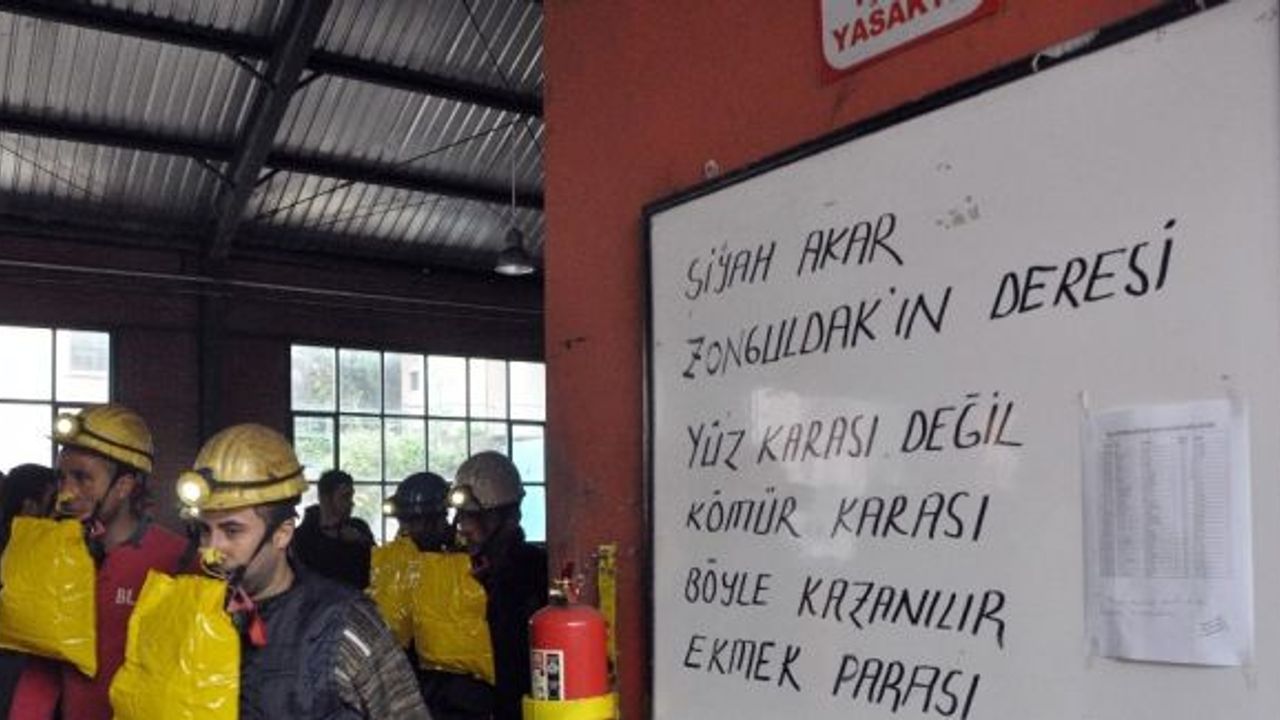 YASAKTIR
SİYAH AKAR
ZONGULDAK'IN DERESİ
YÜZ KARASI DEĞİL
KÖMÜR KARASI
BÖYLE KAZANILIR
EKMEK PARASI
BL